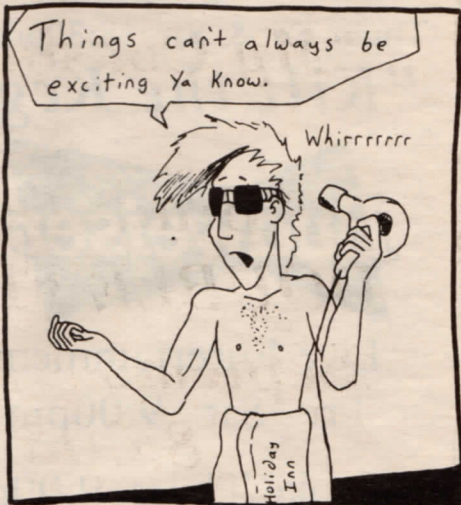 Things can't always be
exciting Ya Know.
Whirrrrrrr
Holiday
Inn